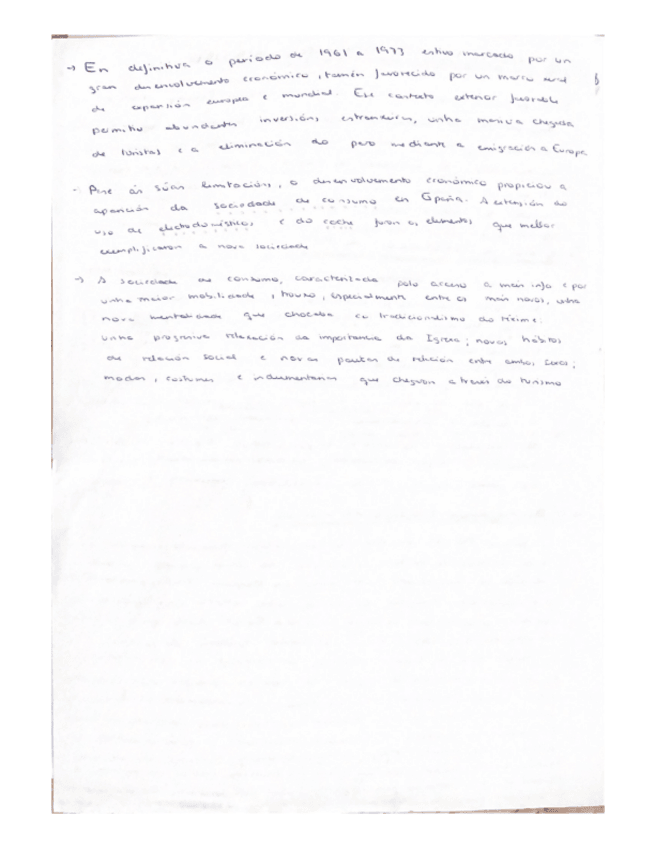 → En definitiva o periodo de 1961 a 1973 estivo marcado por un
gran desenvolvemento económico, tamén favorecido por un marco xeral
de expansión europea e mundial. Ese contexto exterior favorable
permitiu abundantes inversións estranxeiras, unha masiva chegada
de turistas e a eliminación do paro mediante a emigración a Europa
- Pese ás súas limitacións, o desenvolvemento económico propiciou a
aparición da sociedade de consumo en España. A extensión do
uso de electrodomésticos e do coche foron os elementos que mellor
exemplificaron a nova sociedade
→ A sociedade de consumo, caracterizada polo acceso a máis info e por
unha maior mobilidade, trouxo, especialmente entre os máis novos, unha
nova mentalidade que chocaba co tradicionalismo do réxime:
unha progresiva relaxación da importancia da Igrexa; novos hábitos
de relación social e novas pautas de relación entre ambos sexos;
modas, costumes e indumentarias que chegaron a través do turismo